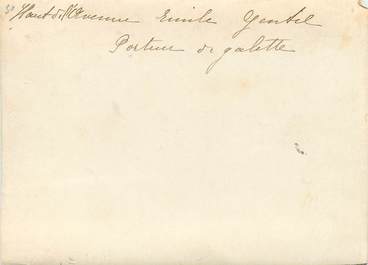 Haut de l'Avenue Emile Gentil
Porteur de galette